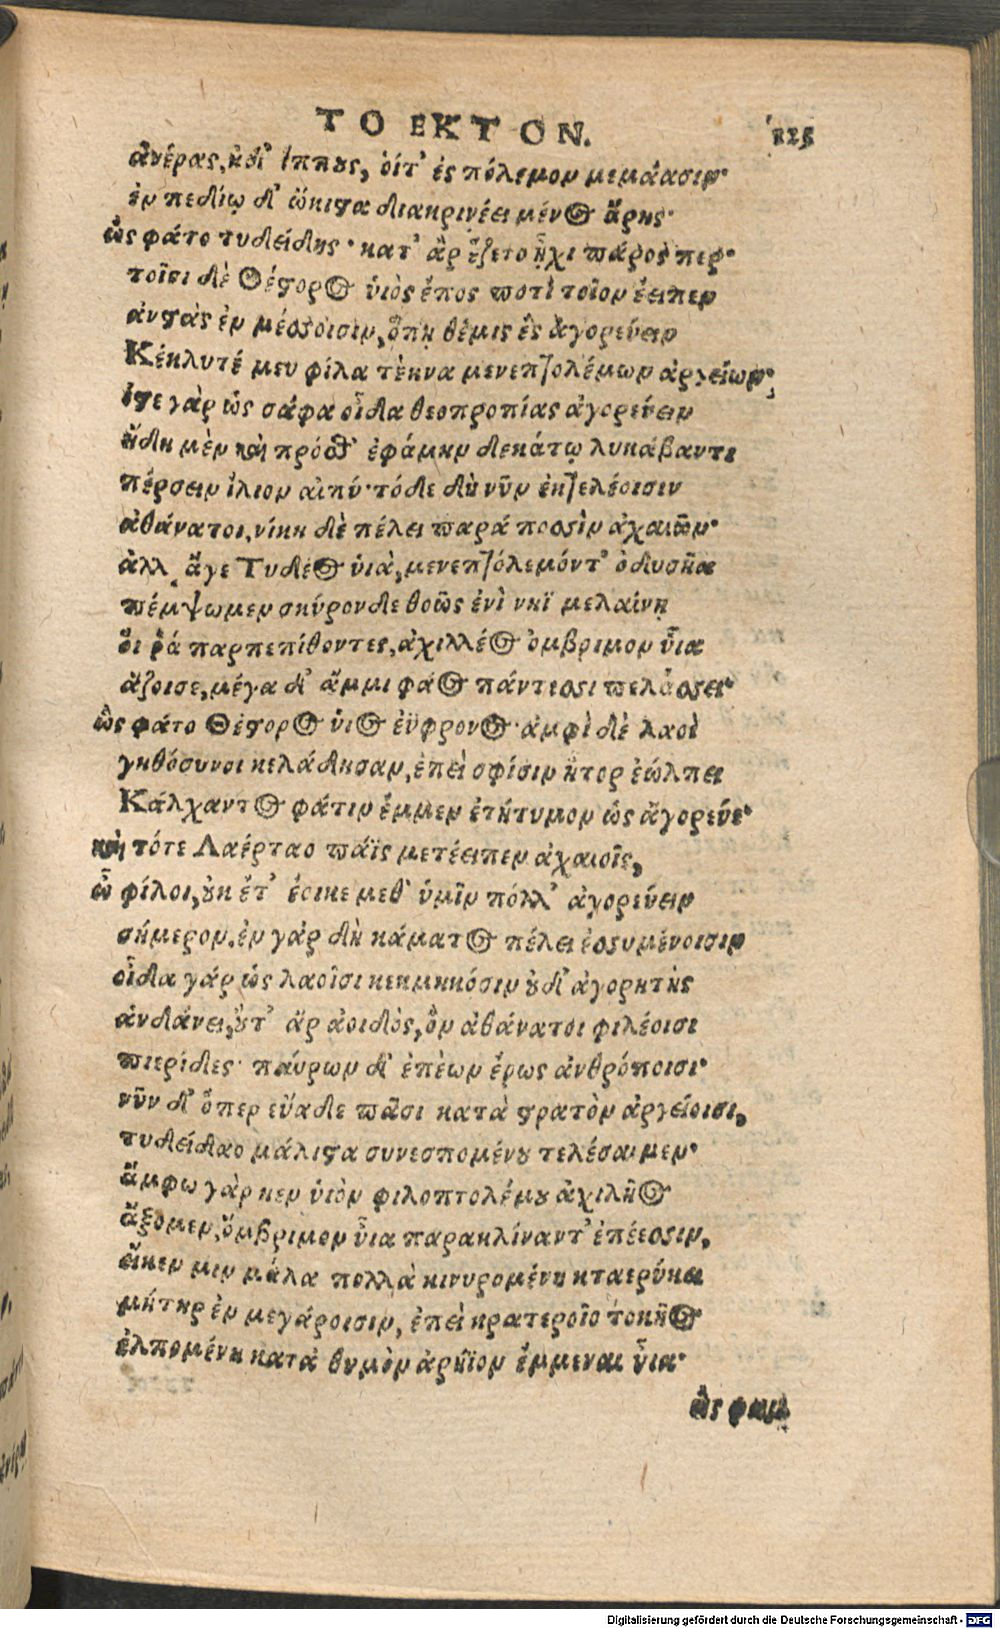 ΤΟ ΕΚΤΟΝ. 125
ἀνέρας, ἠδ' ἵππους, οἵτ' ἐς πόλεμον μεμάασιν·
ἐν πεδίῳ δ' ὤκιστα διακρινέει μένος ἄρης·
ὣς φάτο τυδείδης· κατ' ἂρ ἕζετο ἧχι πάρος περ·
τοῖσι δὲ Θέστορος ὑιὸς ἔπος ποτὶ τοῖον ἔειπεν
ἀνστὰς ἐν μέσσοισιν, ὅπη θέμις ἐς ἀγορεύειν
Κέκλυτέ μευ φίλα τέκνα μενεπτολέμων ἀργείων·
ἴστε γὰρ ὡς σάφα οἶδα θεοπροπίας ἀγορεύειν
ἤδη μὲν καὶ πρόσθ' ἐφάμην δεκάτῳ λυκάβαντι
πέρσειν ἴλιον αἰπύ· τόδε δὴ νῦν ἐκτελέοισιν
ἀθάνατοι, νίκη δὲ πέλει παρά ποσσὶν ἀχαιῶν·
ἀλλ' ἄγε Τυδέος ὑιὰ, μενεπτόλεμόντ' ὀδυσῆα
πέμψωμεν σκύρονδε θοῶς ἐνὶ νηῒ μελαίνῃ
ὅι ῥά παρπεπίθοντες, ἀχιλλέος ὄμβριμον ὗια
ἄζοισε, μέγα δ' ἄμμι φάος πάντεσσι πελάσσει·
ὣς φάτο Θέστορος ὑιὸς ἐΰφρονος· ἀμφὶ δὲ λαοὶ
γηθόσυνοι κελάδησαν, ἐπεὶ σφίσιν ἦτορ ἐώλπει
Κάλχαντος φάτιν ἔμμεν ἐτήτυμον ὡς ἀγορεύε·
καὶ τότε Λαέρταο πάϊς μετέειπεν ἀχαιοῖς,
ὦ φίλοι, οὐκ ἔτ' ἔοικε μεθ' ὑμῖν πόλλ' ἀγορεύειν
σήμερον. ἐν γὰρ δὴ κάματος πέλει ἐσσυμένοισιν
οἶδα γάρ ὡς λαοῖσι κεκμηκόσιν οὐδ' ἀγορητὴς
ἁνδάνει, οὔτ' ἂρ ἀοιδὸς, ὃν ἀθάνατοι φιλέοισι
πιερίδες· παύρων δ' ἐπέων ἔρως ἀνθρόποισι·
νῦν δ' ὅπερ εὔαδε πᾶσι κατὰ στρατὸν ἀργείοισι,
τυδείδαο μάλιστα συνεσπομένου τελέσαιμεν·
ἄμφω γὰρ κεν ὑιὸν φιλοπτολέμου ἀχιλῆος
ἄξομεν, ὄμβριμον ὗια παρακλίναντ' ἐπέεσσιν,
εἴκεν μιν μάλα πολλὰ κινυρομένη κταερύκει
μήτηρ ἐν μεγάροισιν, ἐπεὶ κρατεροῖο τοκῆος
ἐλπομένη κατὰ θυμὸν ἀρήϊον ἔμμεναι ὗια·
ὣς φαμ
Digitalisierung gefördert durch die Deutsche Forschungsgemeinschaft - DFG